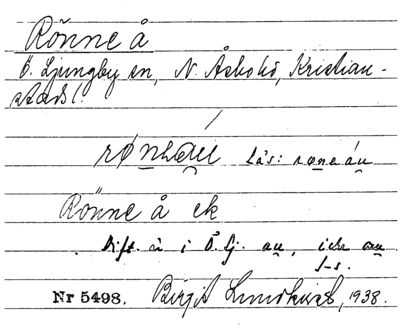 Rönne å
Ö. Ljungby sn, N. Åsbohd, Kristian-
stads l.
Läs:
Rönne å ek
Dift. å i Ö. Lj. au, icke
Nr 5498. Birgit Lundkvist, 1938.